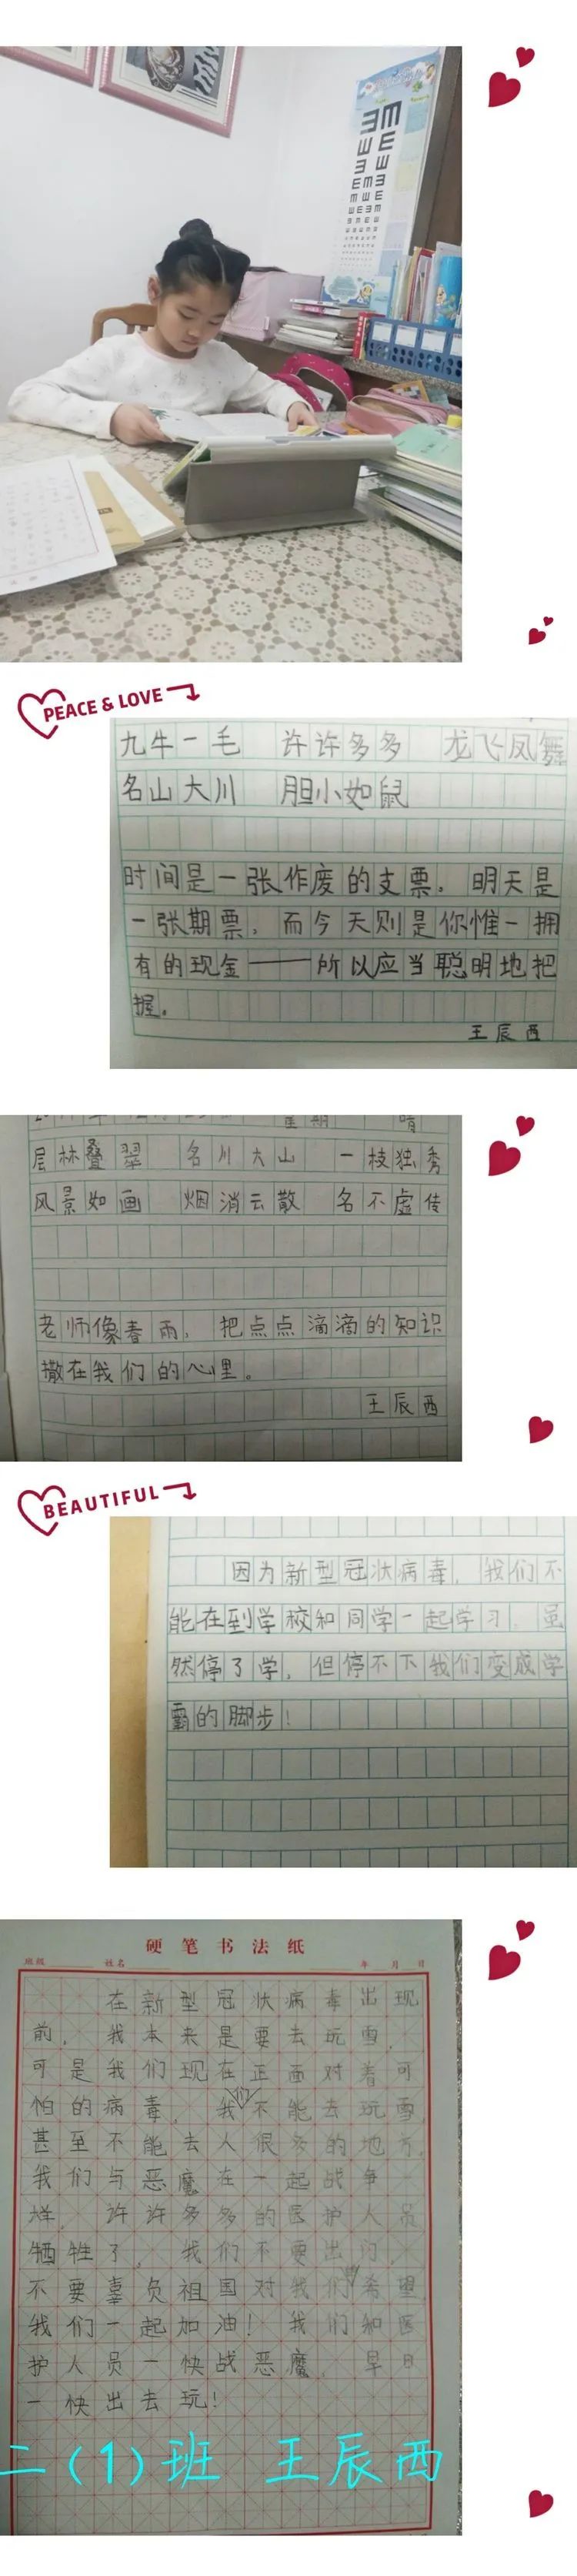 PEACE & LOVE
九牛一毛 许许多多 龙飞凤舞
名山大川 胆小如鼠
时间是一张作废的支票。明天是
一张期票,而今天则是你惟一拥
有的现金——所以应当聪明地把
握。
王辰西
星期 晴
层林叠翠 名川大山 一枝独秀
风景如画 烟消云散 名不虚传
老师像春雨,把点点滴滴的知识
撒在我们的心里。
王辰西
BEAUTIFUL
因为新型冠状病毒,我们不
能在到学校和同学一起学习 虽
然停了学,但停不下我们变成学
霸的脚步!
硬笔书法纸
班级 姓名 年 月 日
在新型冠状病毒出现
前,我本来是要去玩雪,
可是我们现在正面对着可
怕的病毒,我们不能去玩雪
甚至不能去人很多的地方,
我们与恶魔在一起战争
许许多多的医护人员
牺牲了。我们不要出门,
不要辜负祖国对我们希望
我们一起加油!我们和医
护人员一快战恶魔,早日
一快出去玩!
二(1)班 王辰西